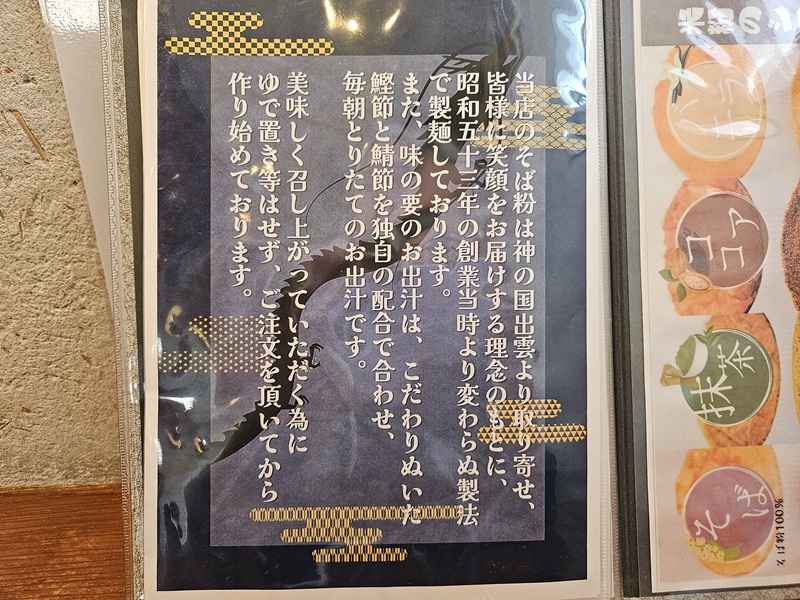 当店のそば粉は神の国出雲より取り寄せ、
皆様に笑顔をお届けする理念のもとに、
昭和五十三年の創業当時より変わらぬ製法
で製麺しております。
また、味の要のお出汁は、こだわりぬいた
鰹節と鯖節を独自の配合で合わせ、
毎朝とりたてのお出汁です。
美味しく召し上がっていただく為に
ゆで置き等はせず、ご注文を頂いてから
作り始めております。
バニラ
ココア
抹茶
そば
そば粉100%